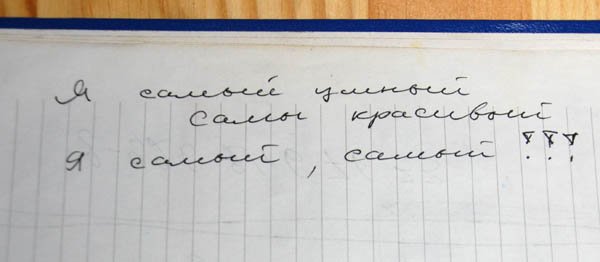 Я самый умный
самы красивый
Я самый, самый !!!